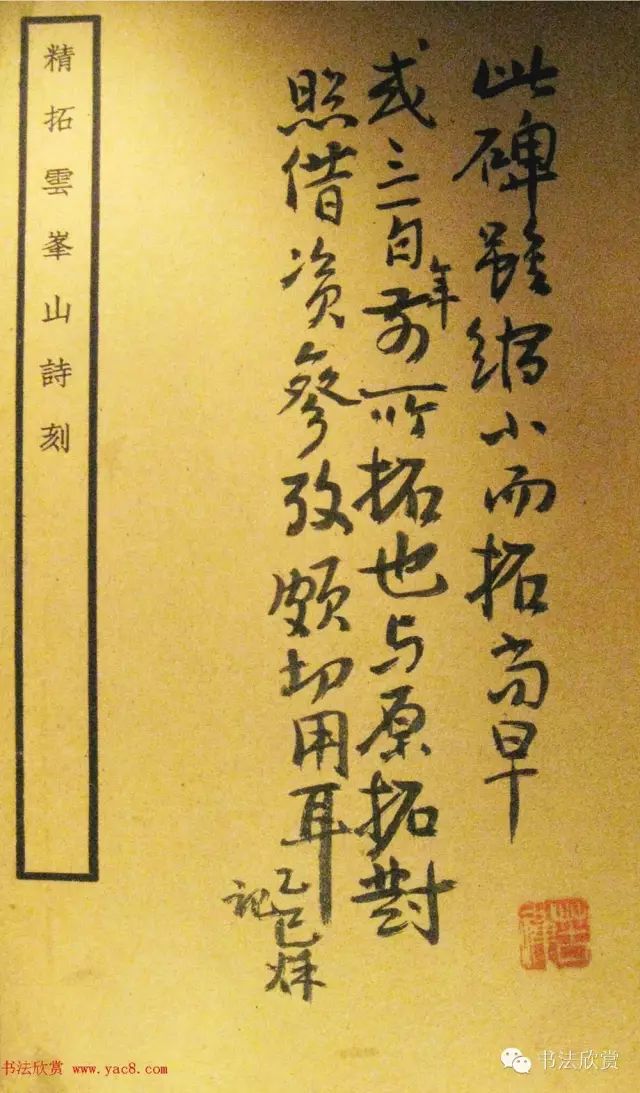 此碑雖縮小而拓尚早
或三百年前所拓也与原拓對
照借資參攷頗切用耳
乙巳秌
记
精拓雲峯山詩刻
书法欣赏 www.yac8.com
书法欣赏